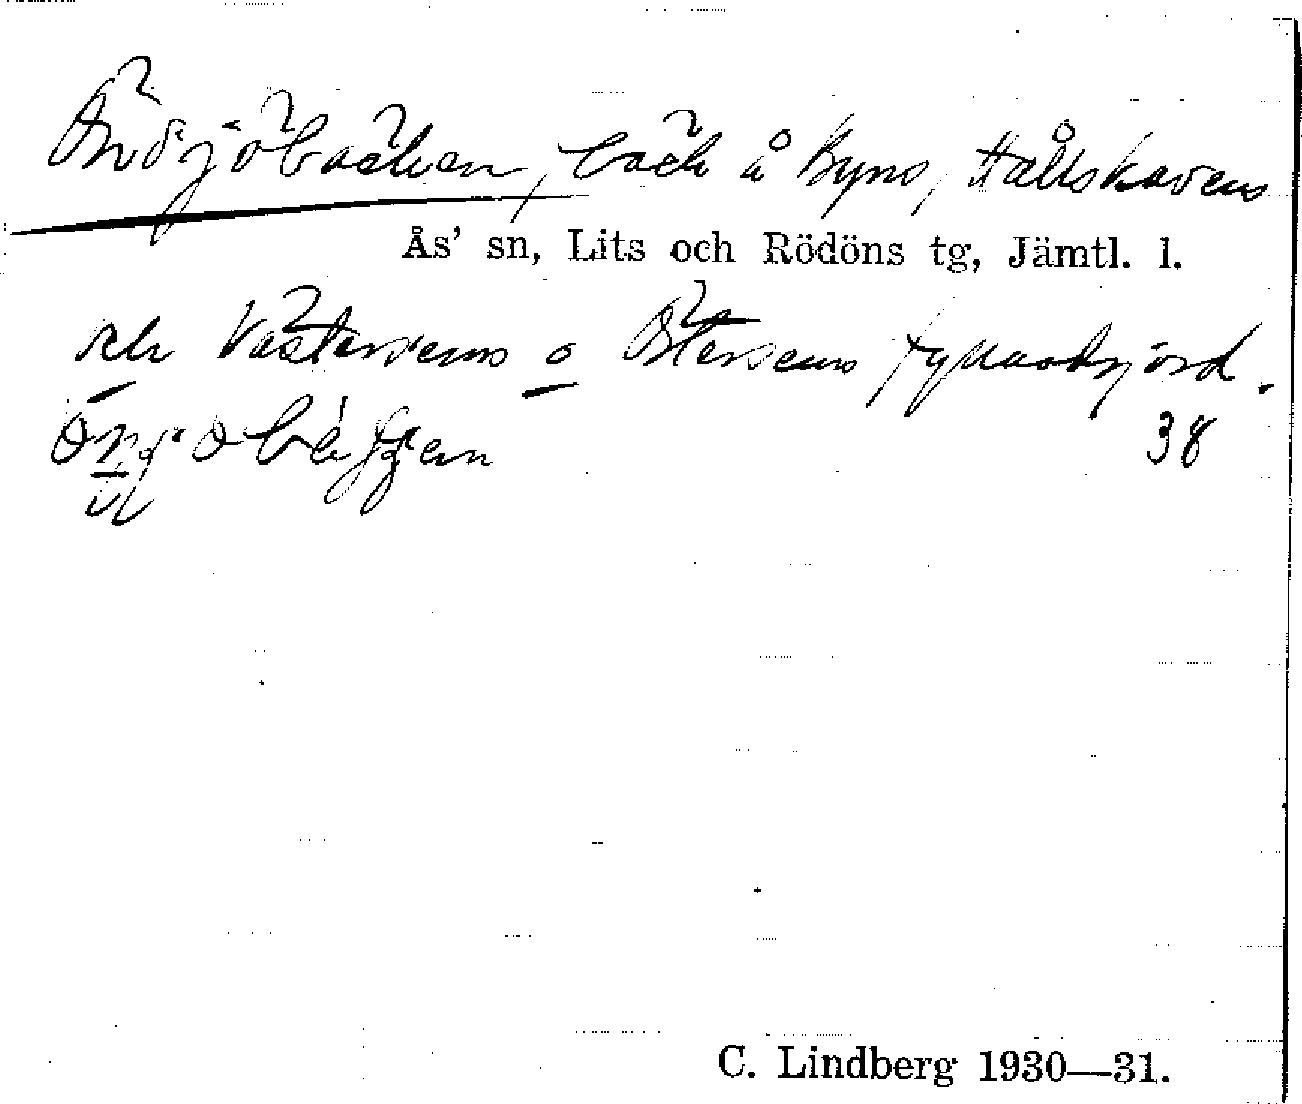 Öndsjöbäcken, bäck å Byns, Hållskavens
Ås' sn, Lits och Rödöns tg, Jämtl. l.
och Västersems o Östersems jord.
38
C. Lindberg 1930—31.